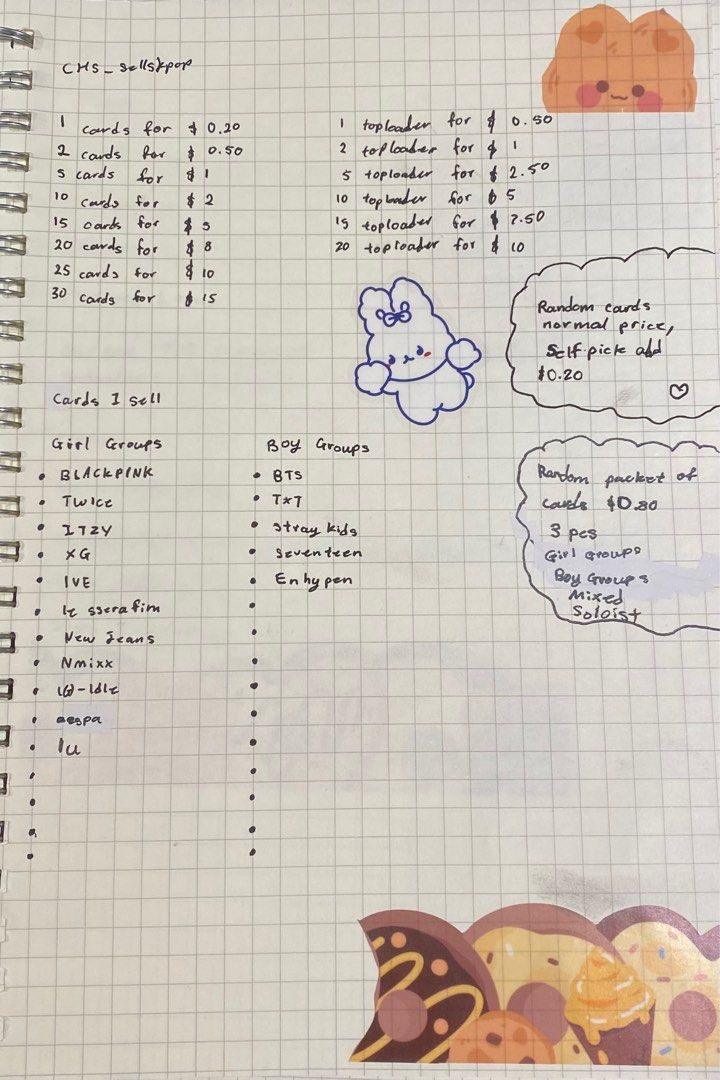 CHS_sellskpop
1 cards for $ 0.20
2 cards for $ 0.50
5 cards for $ 1
10 cards for $ 2
15 cards for $ 5
20 cards for $ 8
25 cards for $ 10
30 cards for $ 15
1 toploader for $ 0.50
2 toploader for $ 1
5 toploader for $ 2.50
10 toploader for $ 5
15 toploader for $ 7.50
20 toploader for $ 10
Random cards
normal price,
self-pick add
$0.20
Cards I sell
Girl Groups
• BLACKPINK
• Twice
• ITZY
• XG
• IVE
• le sserafim
• New Jeans
• Nmixx
• (G)-Idle
• aespa
• Iu
Boy Groups
• BTS
• TXT
• Stray kids
• Seventeen
• Enhypen
Random packet of
cards $0.80
3 pcs
Girl Groups
Boy Groups
Mixed
Soloist